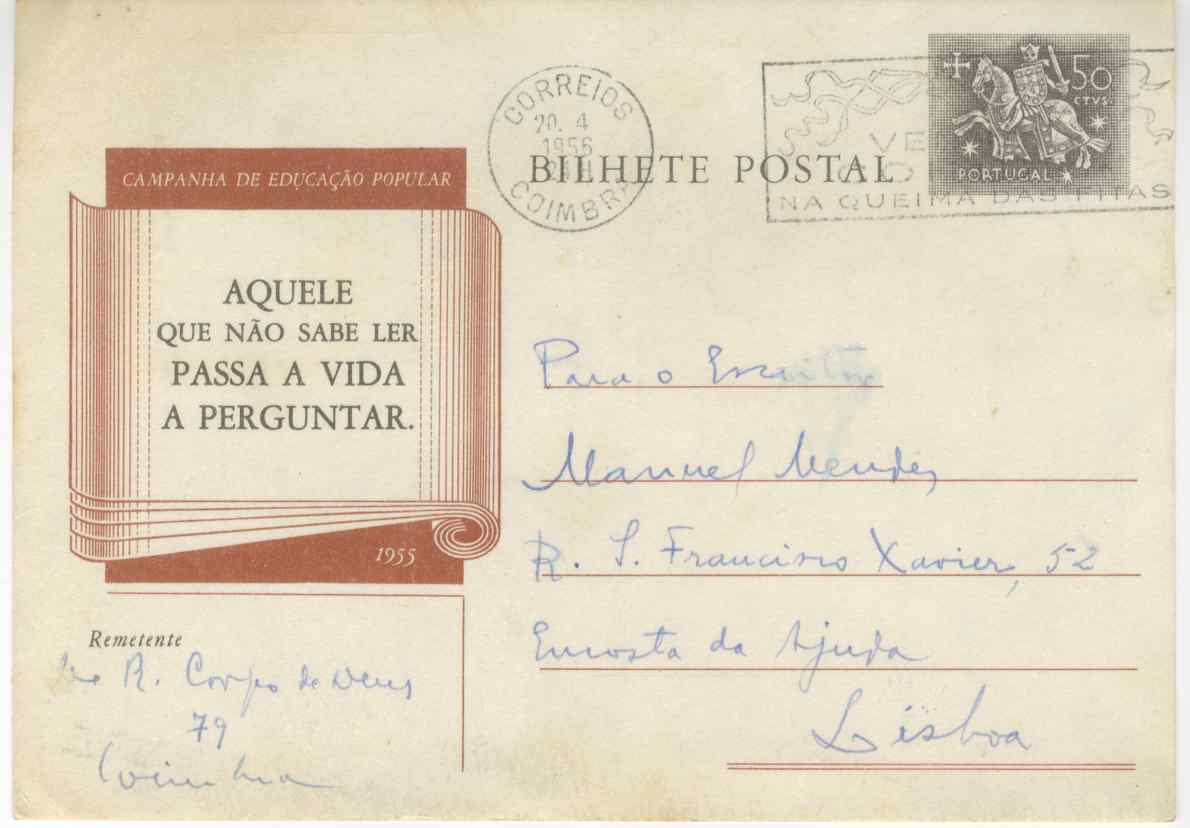 CORREIOS
20. 4
1956
COIMBRA
50
CTVS.
PORTUGAL
NA QUEIMA DAS FITAS
BILHETE POSTAL
CAMPANHA DE EDUCAÇÃO POPULAR
AQUELE
QUE NÃO SABE LER
PASSA A VIDA
A PERGUNTAR.
1955
Para o Escritor
Manuel Mendes
R. S. Francisco Xavier, 52
Encosta da Ajuda
Lisboa
Remetente
R. Corpo de Deus
79
Coimbra